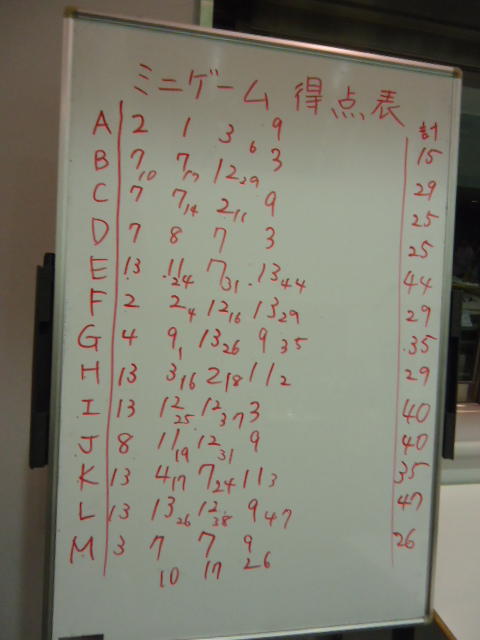 ミニゲーム 得点表
計
A 2 1 3 6 9 15
B 7 10 7 17 12 29 3 29
C 7 7 14 2 11 9 25
D 7 8 7 3 25
E 13 11 24 7 31 13 44 44
F 2 2 4 12 16 13 29 29
G 4 9 1 13 26 9 35 35
H 13 3 16 2 18 11 2 29
I 13 12 25 12 37 3 40
J 8 11 19 12 31 9 40
K 13 4 17 7 24 11 3 35
L 13 13 26 12 38 9 47 47
M 3 7 7 9 26
10 17 26